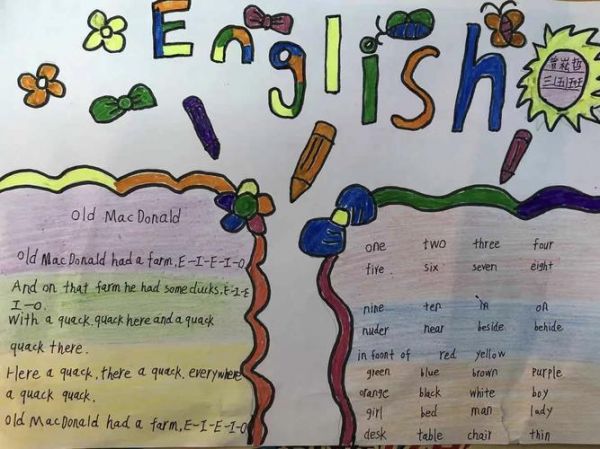 English
曾崧哲
三(五)班
Old MacDonald
Old MacDonald had a farm, E-I-E-I-O
And on that farm he had some ducks, E-I-E
I-O.
With a quack quack here and a quack
quack there.
Here a quack, there a quack, everywhere
a quack quack.
Old MacDonald had a farm, E-I-E-I-O
one two three four
five six seven eight
nine ten in on
nuder near beside behide
in foont of red yellow
green blue brown purple
orange black white boy
girl bed man lady
desk table chair thin